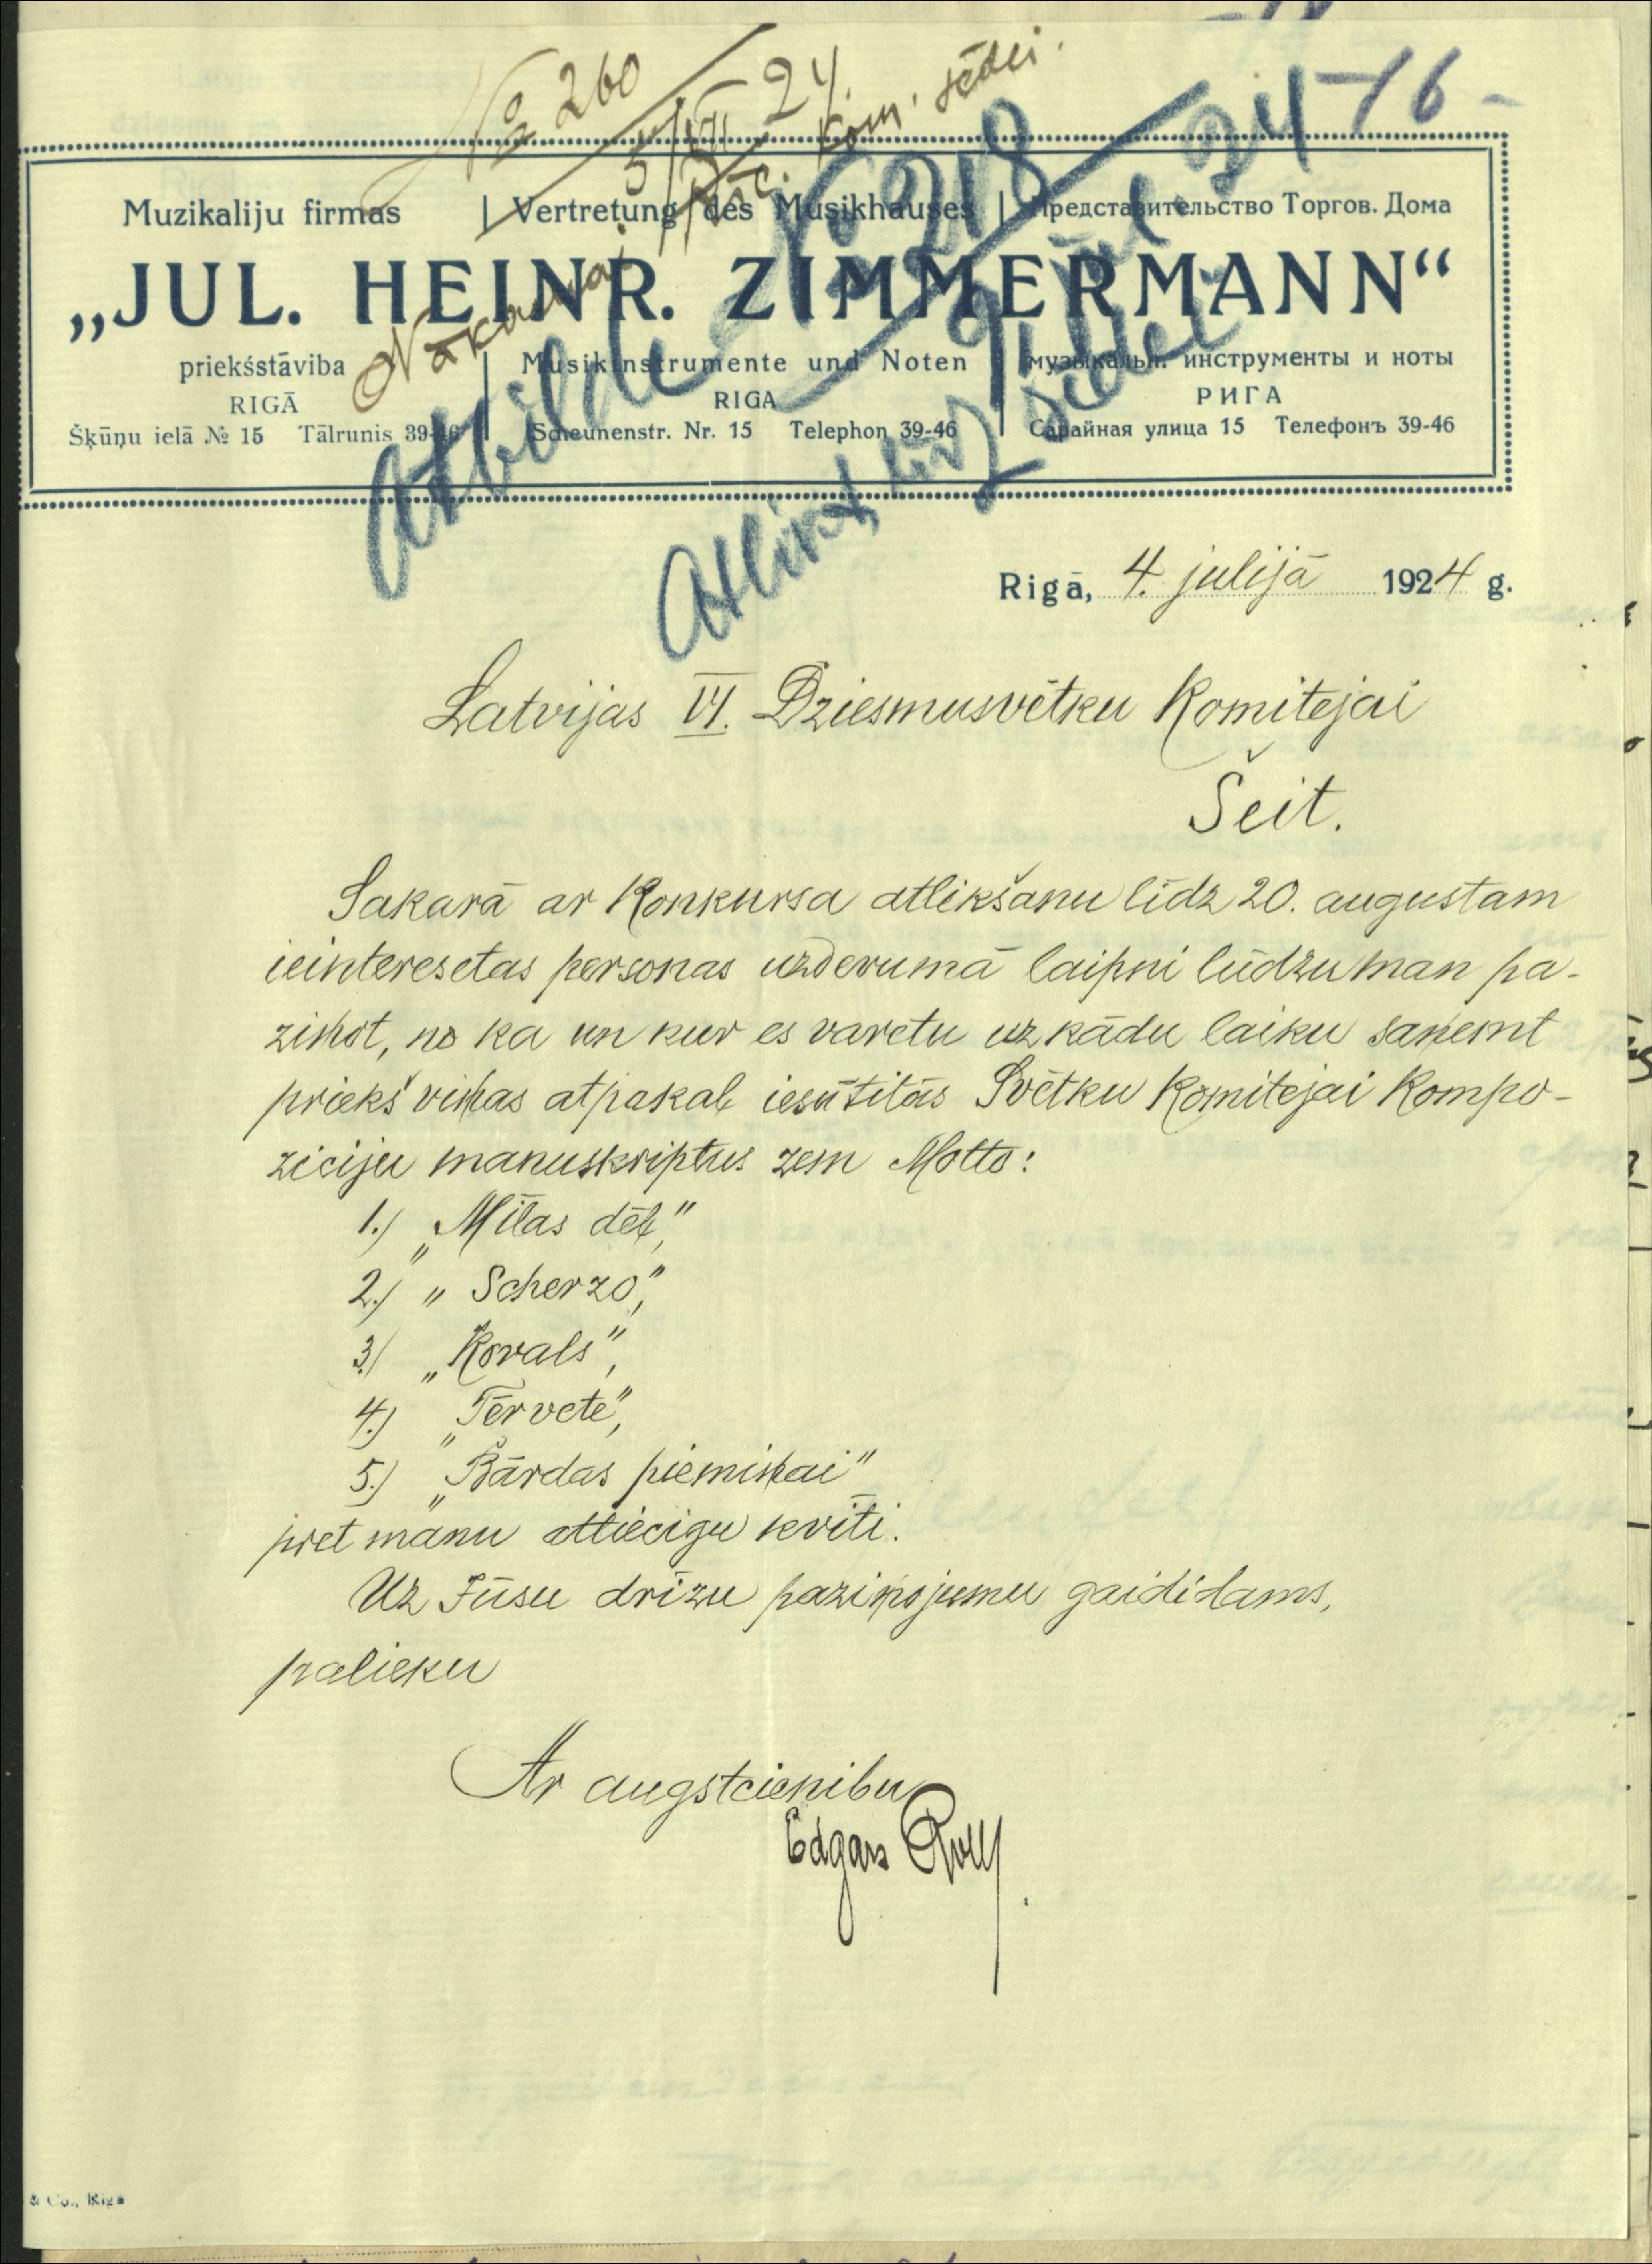 № 260
5/VII 24.
Nākamai prc. kom. sēdei.
Muzikaliju firmas | Vertretung des Musikhauses | Представительство Торгов. Дома
„JUL. HEINR. ZIMMERMANN“
priekśstāviba | Musikinstrumente und Noten | музыкальн. инструменты и ноты
RIGĀ RIGA РИГА
Šķūņu ielā № 15 Tālrunis 39-46 | Scheunenstr. Nr. 15 Telephon 39-46 | Сарайная улица 15 Телефонъ 39-46
Atbilde № 218
24
16
Atlikt līdz
sēdei
Rigā, 4. julijā 1924 g.
Latvijas VI. Dziesmusvētku Komitejai
Šeit.
Sakarā ar Konkursa atlikšanu līdz 20. augustam
ieinteresetas personas uzdevumā laipni lūdzu man pa-
ziņot, no ka un kur es varetu uz kādu laiku saņemt
priekš viņas atpakaļ iesūtitās Svētku Komitejai Kompo-
ziciju manuskriptus zem Motto:
1.) „Mīlas dēļ“,
2.) „Scherzo“,
3.) „Kovals“,
4.) „Tērvete“,
5.) „Bārdas piemiņai“
pret manu attiecigu kvīti.
Uz Jūsu drīzu paziņojumu gaididams,
palieku
Ar augstcienibu
Edgars
& Co., Riga